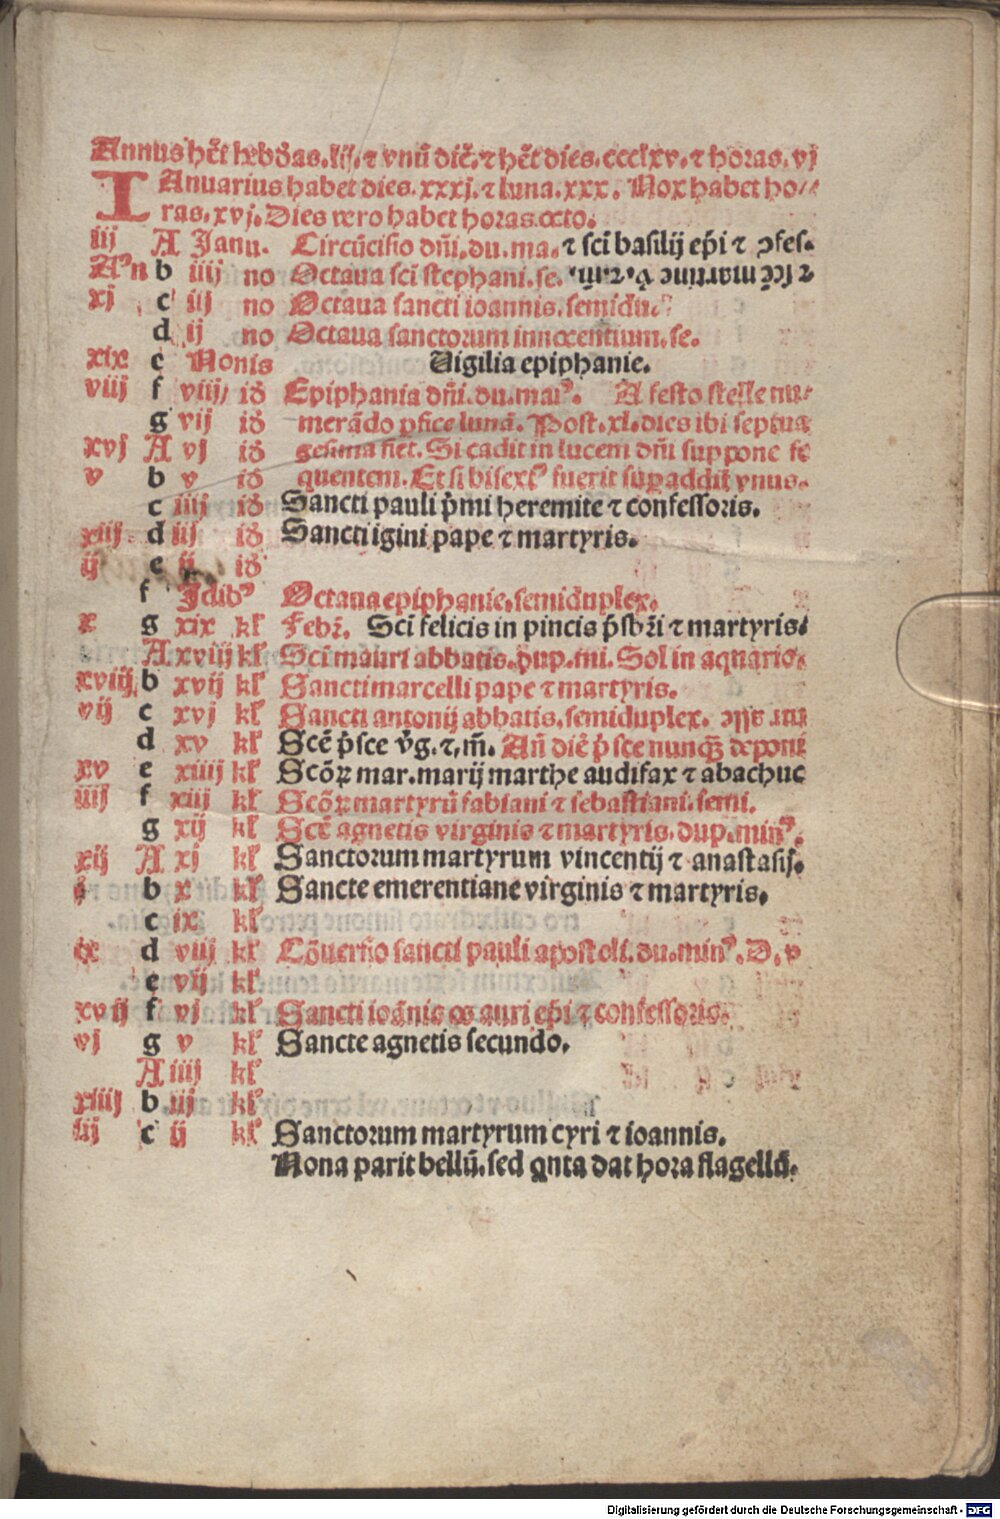 Annus hēt hebdōas. lij. ⁊ vnū diē. ⁊ hēt dies. ccclxv. ⁊ horas. vj
IAnuarius habet dies. xxxj. ⁊ luna. xxx. Nox habet ho//
ras. xvj. Dies vero habet horas octo.
iij A Janu. Circūcisio dn̄i. du. ma. ⁊ sci basilij ep̄i ⁊ ꝯfes.
b iiij no Octaua sci stephani. se. ⁊ scē martine
xj c iij no Octaua sancti ioannis. semidu.
d ij no Octaua sanctorum innocentium. se.
xix e Nonis Uigilia epiphanie.
viij f viij id Epiphania dn̄i. du. maiꝰ. A festo stelle nu/
g vij id merādo ꝑfice lunā. Post. xl. dies ibi septua
xvj A vj id gesima fiet. Si cadit in lucem dn̄i suppone se
v b v id quentem. Et si bisextꝰ fuerit suꝑaddit vnus.
c iiij id Sancti pauli p̄mi heremite ⁊ confessoris.
xiij d iij id Sancti igini pape ⁊ martyris.
ij e ij id
f Jdibꝰ Octaua epiphanie. semiduplex.
x g xix kl Febr̄. Sci felicis in pincis p̄sbr̄i ⁊ martyris.
A xviij kl Sci mauri abbatis. dup. mi. Sol in aquario.
xviij b xvij kl Sancti marcelli pape ⁊ martyris.
vij c xvj kl Sancti antonij abbatis. semiduplex.
d xv kl Scē p̄sce v̄g. ⁊. m̄. An̄ diē p̄sce nunqꝫ deponi
xv e xiiij kl Scōꝝ mar. marij marthe audifax ⁊ abachuc
iiij f xiij kl Scōꝝ martyrū fabiani ⁊ sebastiani. semi.
g xij kl Scē agnetis virginis ⁊ martyris. dup. minꝰ.
xij A xj kl Sanctorum martyrum vincentij ⁊ anastasij.
j b x kl Sancte emerentiane virginis ⁊ martyris.
c ix kl
ix d viij kl Cōuersio sancti pauli apostoli. du. minꝰ. D. v
e vij kl
xvij f vj kl Sancti ioānis os auri ep̄i ⁊ confessoris.
vj g v kl Sancte agnetis secundo.
A iiij kl
xiiij b iij kl
iij c ij kl Sanctorum martyrum cyri ⁊ ioannis.
Nona parit bellū. sed qnta dat hora flagellū.
Digitalisierung gefördert durch die Deutsche Forschungsgemeinschaft - DFG